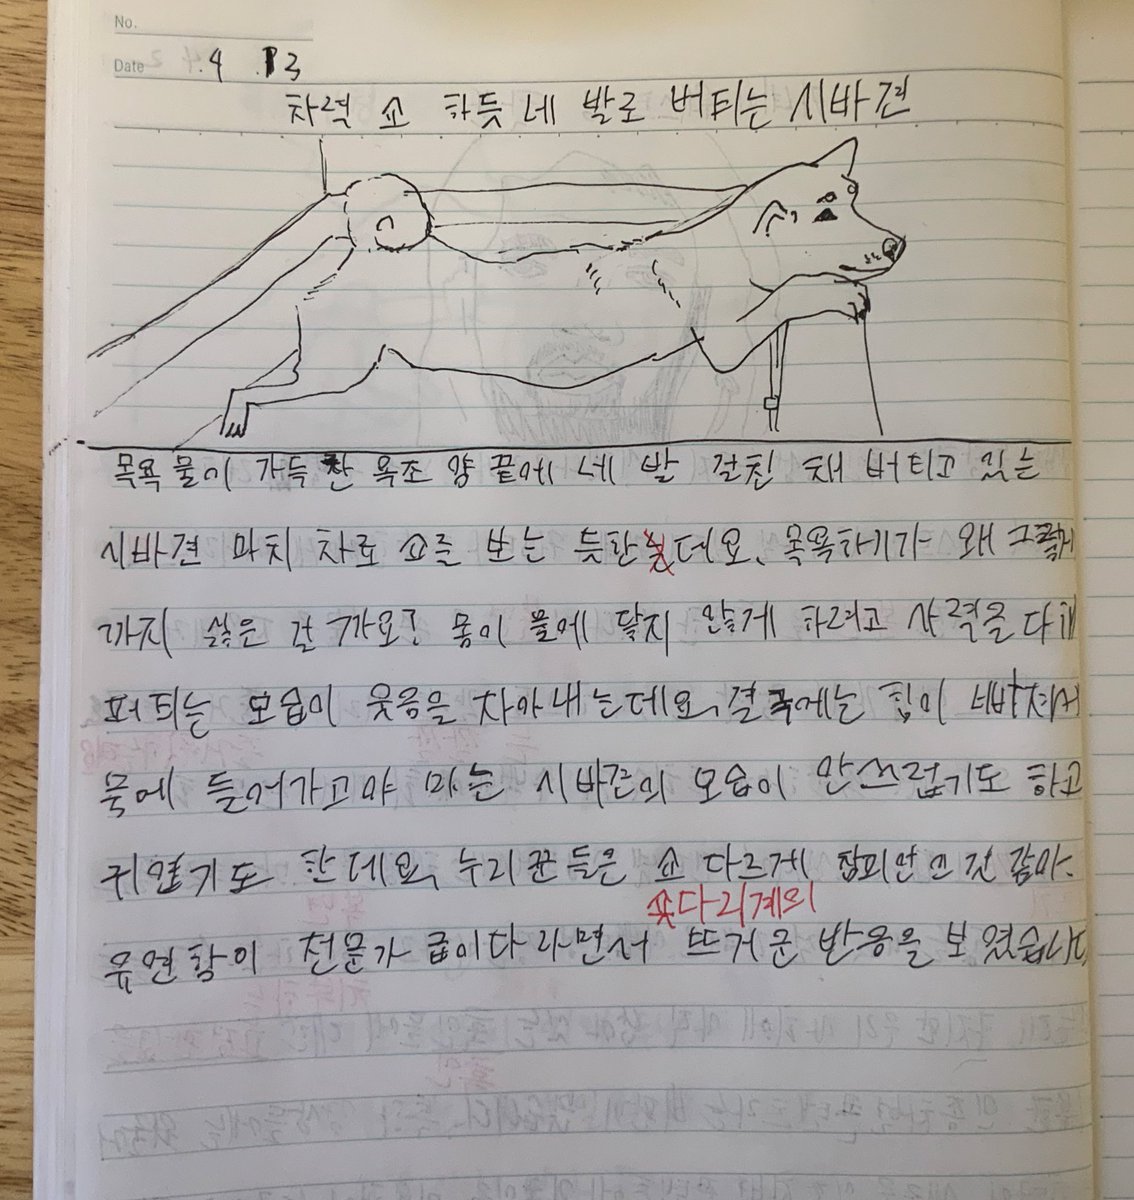 No.
Date .4 .13
차력 쇼 하듯 네 발로 버티는 시바견
목욕 물이 가득 찬 욕조 양 끝에 네 발 걸친 채 버티고 있는
시바견 마치 차로 쇼를 보는 듯한데요, 목욕하기가 왜 그렇게
까지 싫은 건 까요? 몸이 물에 닿지 않게 하려고 사력을 다해
버티는 모습이 웃음을 자아내는데요, 결국에는 힘이
물에 들어가고야 마는 시바견의 모습이 안쓰럽기도 하고
귀엽기도 한데요, 누리꾼들은 쇼 다르게
숏다리계의
유연함이 전문가 급이다 라면서 뜨거운 반응을 보였습니다